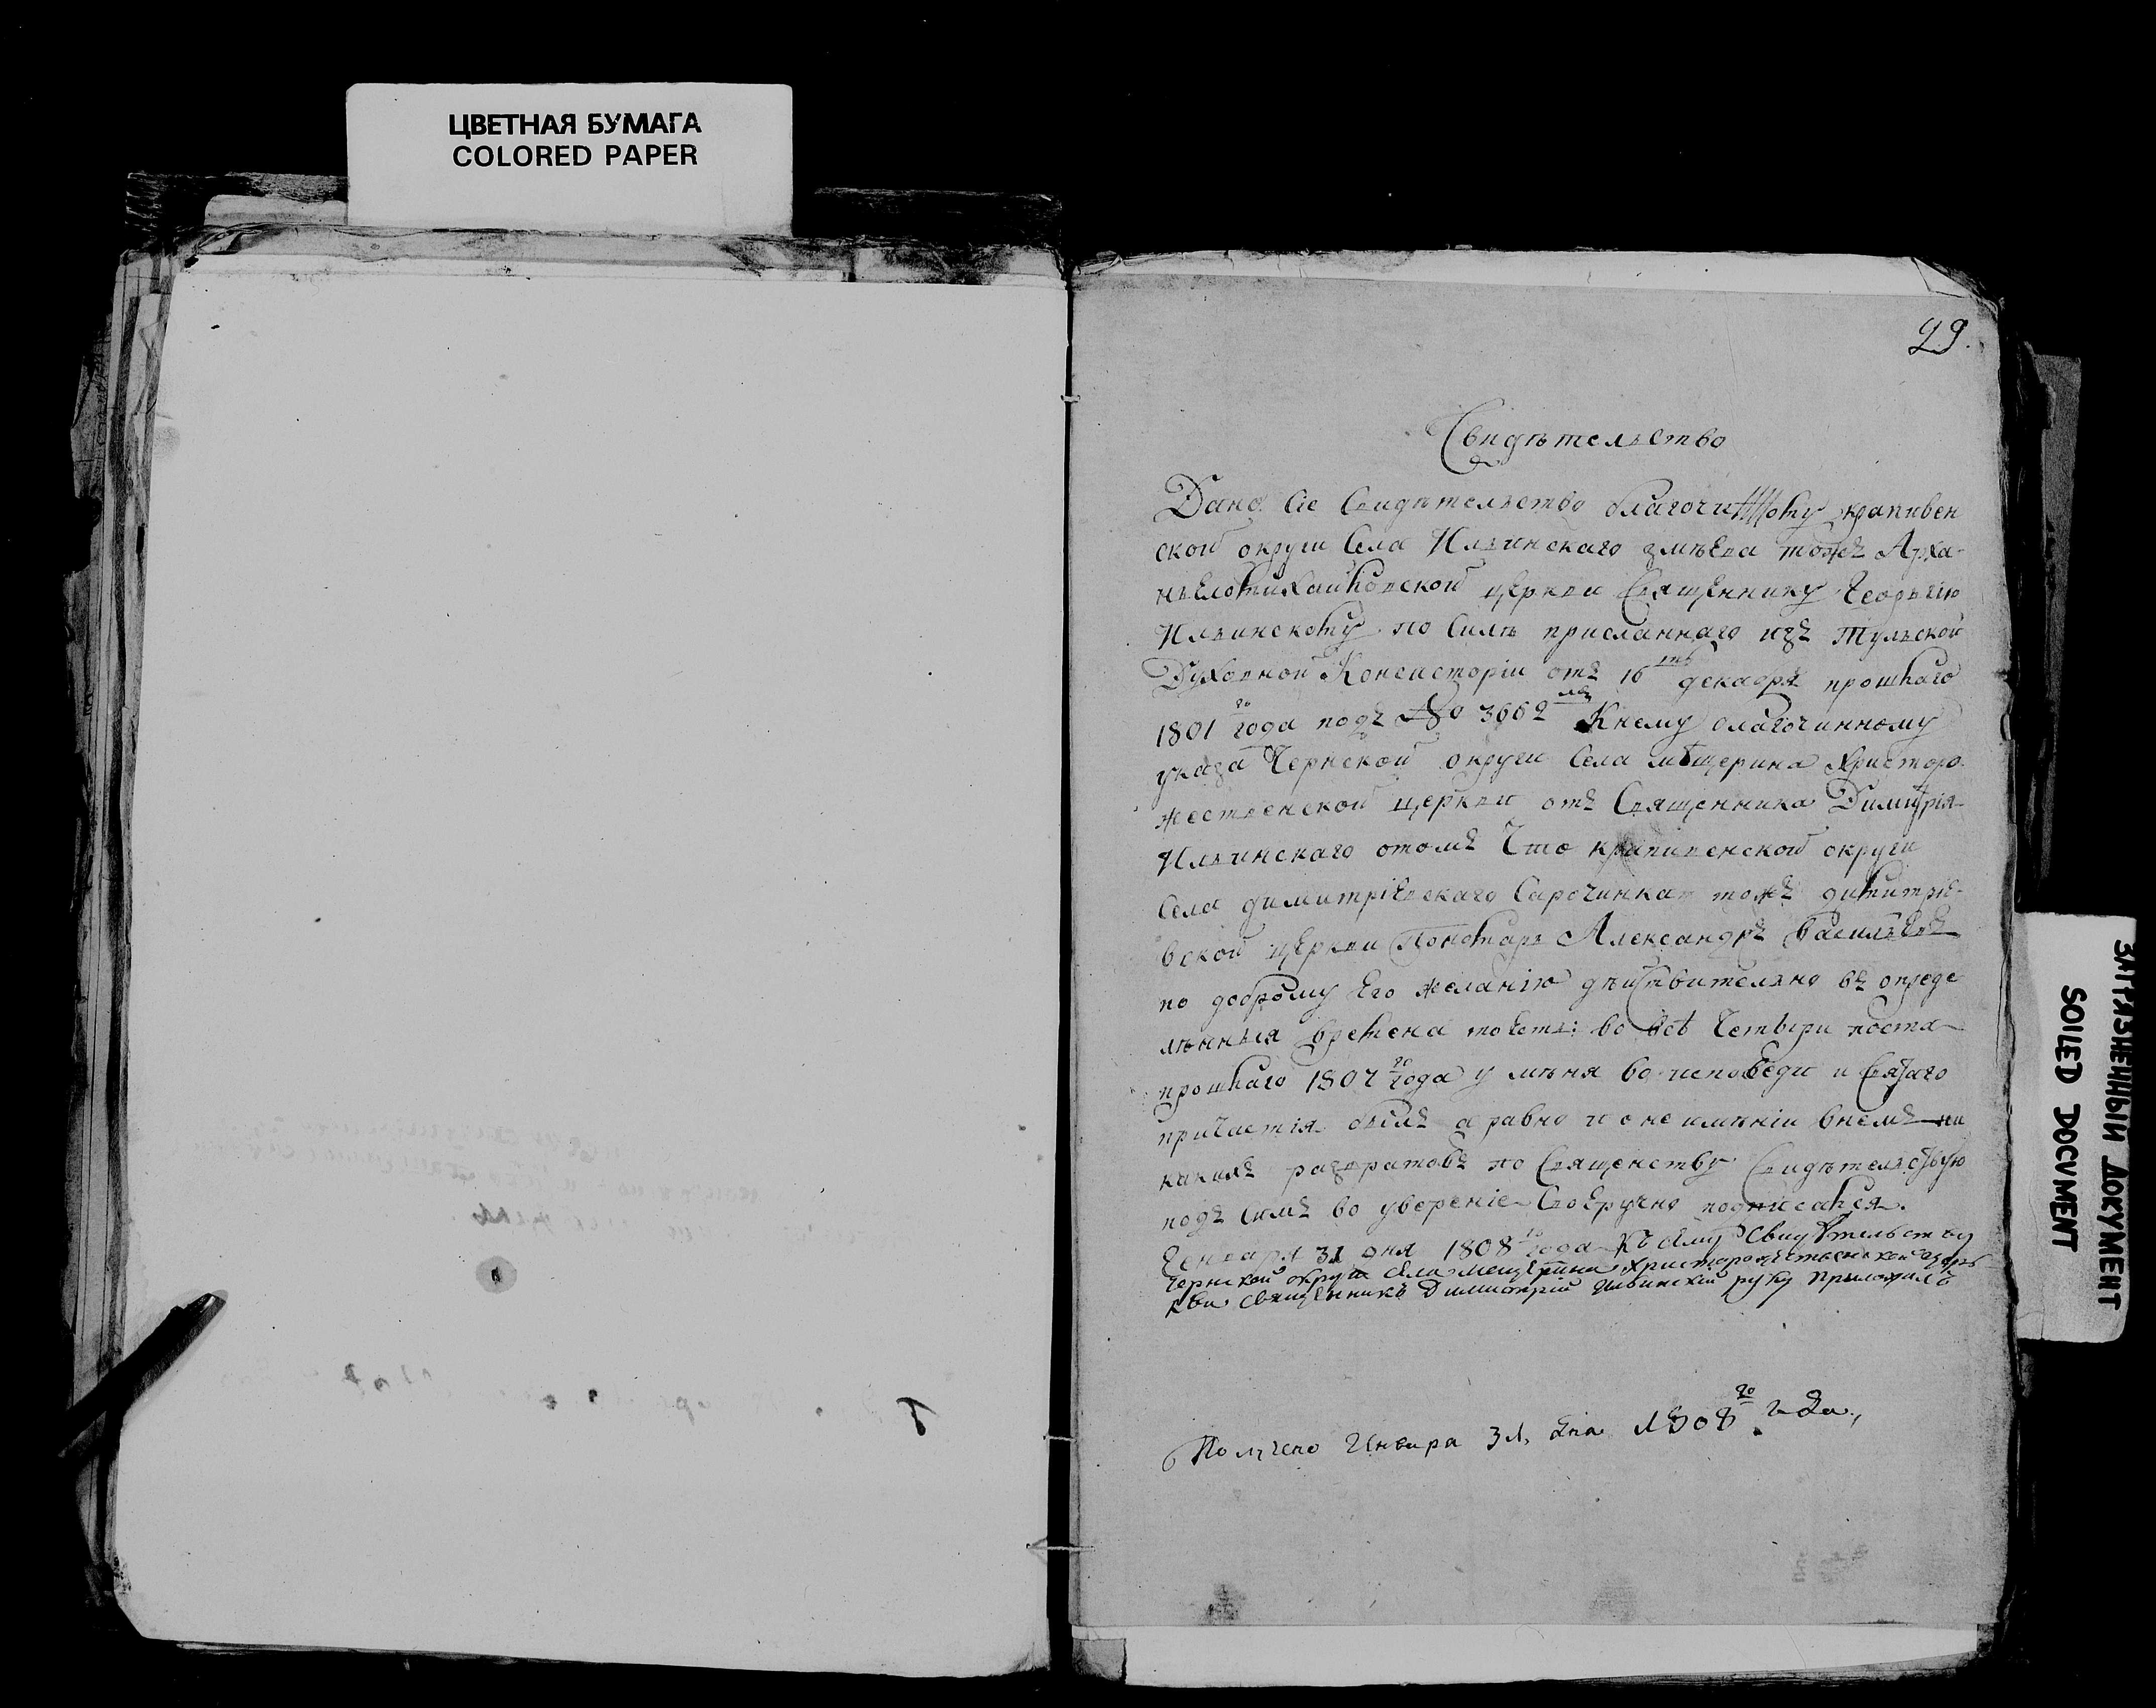 ЦВЕТНАЯ БУМАГА
COLORED PAPER
29.
Свидѣтельство
Дано сіе Свидѣтельство благочинному крапивен
ской округи Села Ильинскаго змѣева тожъ Арха-
нгеломихайловской церкви Священнику Георгію
Ильинскому по силѣ присланнаго изъ Тульской
Духовной Консисторіи отъ 16 декабря прошлаго
1801 го года подъ № 3662 мъ Кнему благочинному
указа Чернской округи Села мѣщерина Христоро
жественской церкви отъ Священника Димитрія
Ильинскаго отомъ Что крапивенской округи
Села димитріевскаго Сарочинка тожъ димитріе-
вской церкви Пономарь Александръ Васильевъ
по доброму Его желанію дѣйствительно въ опреде
лѣнныя времена тоесть: во всѣ Четыри поста
прошлаго 1807 го года у мѣня во исповеди и Святаго
причастія былъ а равно и о не имѣніи внемъ ни
какихъ развратовъ по Священству Свидѣтельствую
подъ симъ во увереніе Своеручно подписался.
Генваря 31 дня 1808 го года Къ сему Свидѣтельству
Чернской округи села мещерина Христорожественской церь
кви священникъ Димитрій Ильинскій руку приложилъ
Получено Генваря 31, дня 1808 го года,
ЗАГРЯЗНЕННЫЙ ДОКУМЕНТ
SOILED DOCUMENT